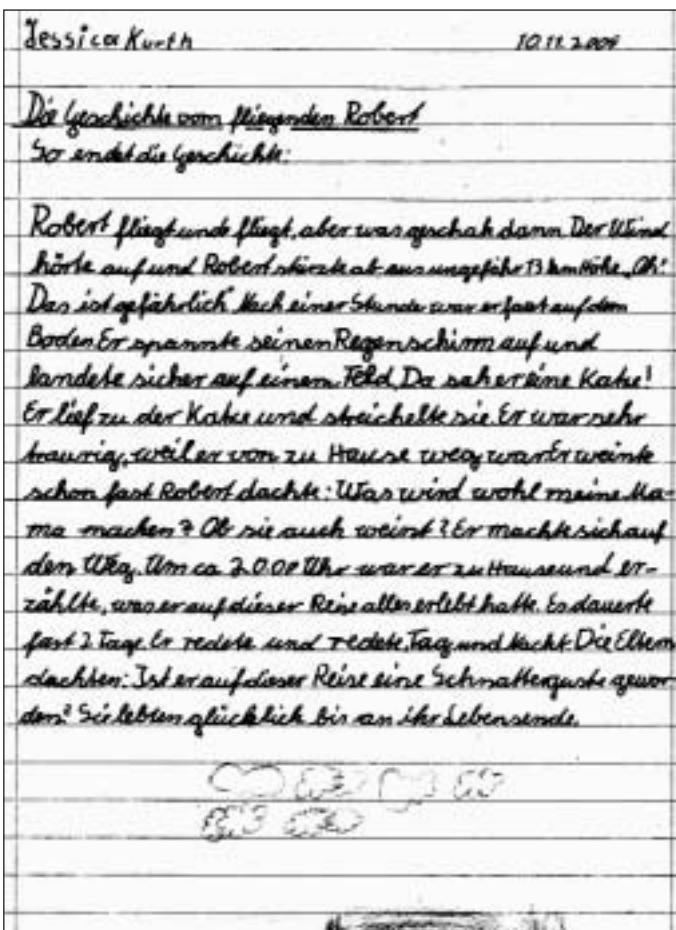 Jessica Kurth 10.11.2009
Die Geschichte vom fliegenden Robert
So endet die Geschichte:
Robert fliegt und fliegt, aber was geschah dann Der Wind
hörte auf und Robert stürzte ab aus ungefähr 13 km Höhe „Oh!
Das ist gefährlich" Nach einer Stunde war er fast auf dem
Boden. Er spannte seinen Regenschirm auf und
landete sicher auf einem Feld. Da sah er eine Katze!
Er lief zu der Katze und streichelte sie. Er war sehr
traurig, weil er von zu Hause weg war. Er weinte
schon fast Robert dachte: Was wird wohl meine Ma-
ma machen? Ob sie auch weint? Er machte sich auf
den Weg. Um ca 20.00 Uhr war er zu Hause und er-
zählte, was er auf dieser Reise alles erlebt hatte. Es dauerte
fast 2 Tage. Er redete und redete, Tag und Nacht. Die Eltern
dachten: Ist er auf dieser Reise eine Schnatterguste gewor-
den? Sie lebten glücklich bis an ihr Lebensende.